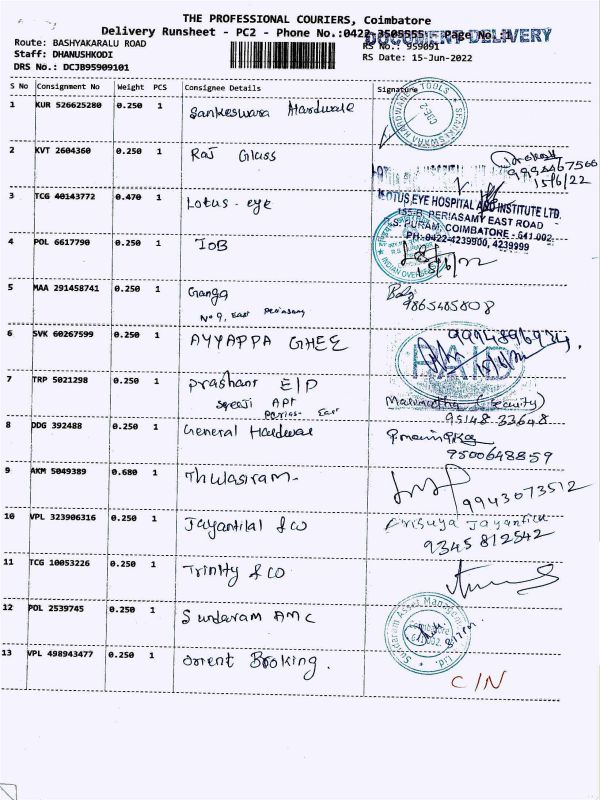 THE PROFESSIONAL COURIERS, Coimbatore
Delivery Runsheet - PC2 - Phone No.:0422-3505555 Page No.:1
DOCUMENT DELIVERY
Route: BASHYAKARALU ROAD
RS No.: 959091
Staff: DHANUSHKODI
RS Date: 15-Jun-2022
DRS No.: DCJB95909101
S No Consignment No Weight PCS Consignee Details Signature
1 KUR 526625280 0.250 1 Sankeswara Hardware
SANKESWARA HARDWARE TOOLS CBE-2
2 KVT 2604360 0.250 1 Raj Glass
9994467566
15/6/22
3 TCG 40143772 0.470 1 Lotus - eye
LOTUS EYE HOSPITAL AND INSTITUTE LTD.
155/B, PERIASAMY EAST ROAD
R.S. PURAM, COIMBATORE - 641 002.
PH: 0422-4239900, 4239999
4 POL 6617790 0.250 1 IOB
INDIAN OVERSEAS
15/6/22
5 MAA 291458741 0.250 1 Ganga
No 9, East Periasamy
9865485808
6 SVK 60267599 0.250 1 AYYAPPA GHEE
9994896934.
PAID
7 TRP 5021298 0.250 1 prashant E/P
sreeji APt
Perias- East
(Security)
95148 33648
8 DDG 392488 0.250 1 General Hardwar
9500648859
9 AKM 5049389 0.680 1 Thulasiram-
9943073512
10 VPL 323906316 0.250 1 Jayantilal & co
Jayantilal
9345812542
11 TCG 10053226 0.250 1 Trinity & CO
12 POL 2539745 0.250 1 Sundaram AMC
Sundaram Asset Management Ltd. Coimbatore 641 002.
13 VPL 498943477 0.250 1 orient Broking.
C/N